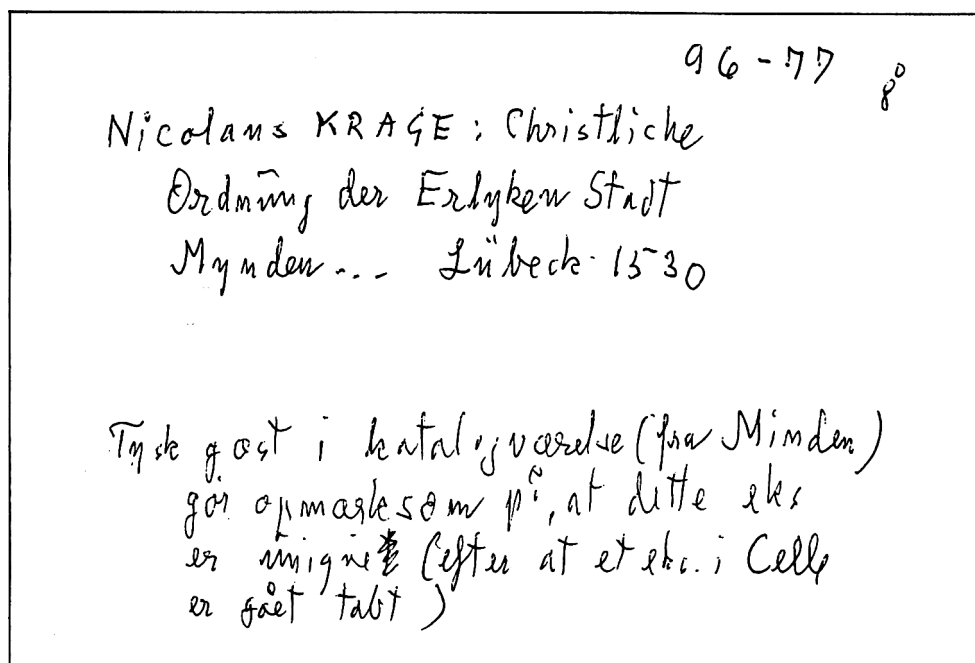 96-77 8°
Nicolaus KRAGE: Christliche
Ordnung der Erlyken Stadt
Mynden... Lübeck 1530
Tysk gæst i katalogværelse (fra Minden)
gør opmærksom på, at dette eks
er unique (efter at et eks. i Celle
er gået tabt)